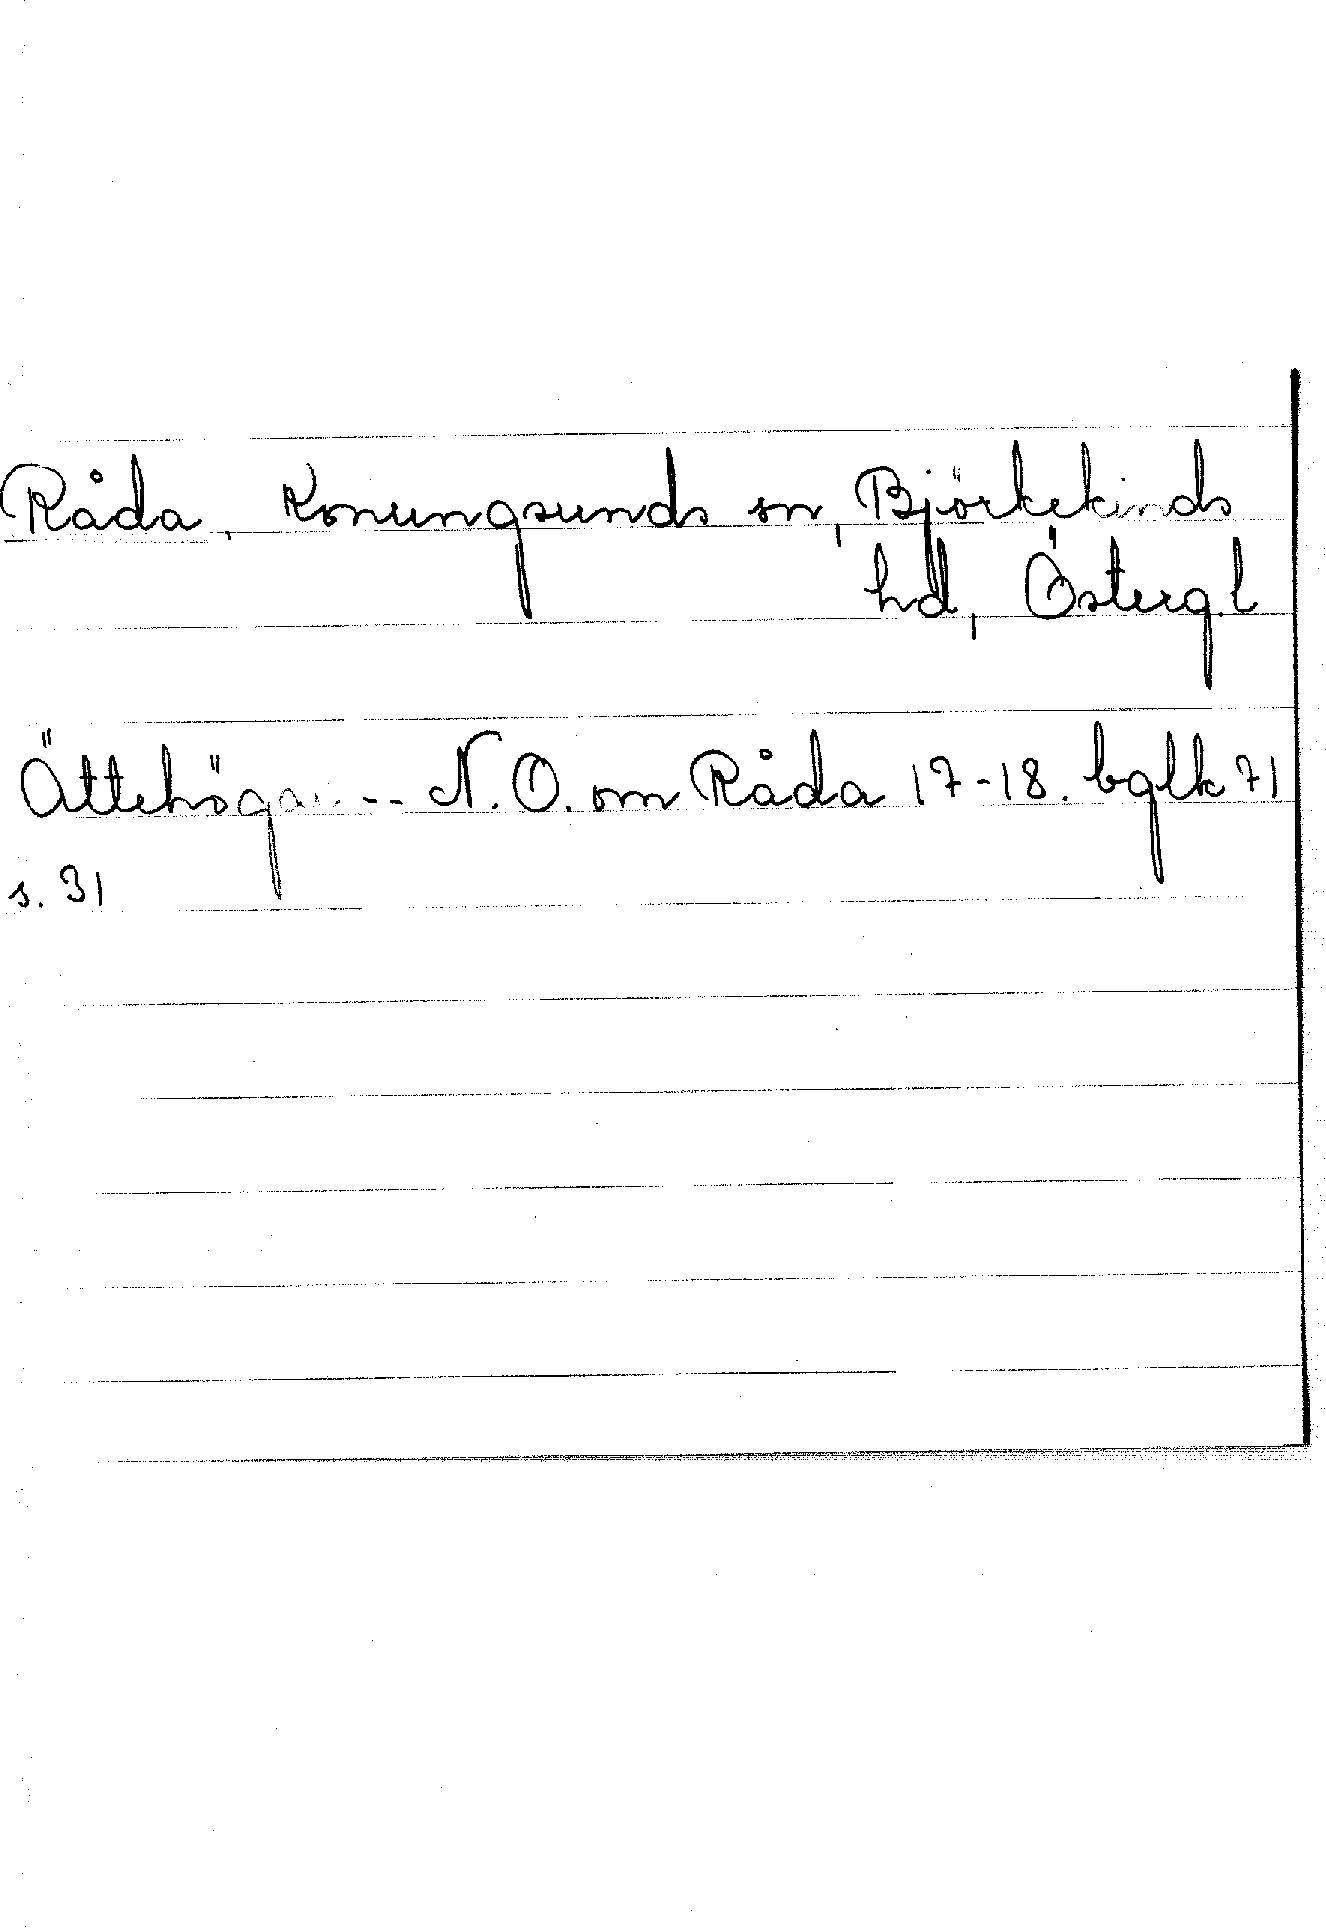 Råda, Konungsunds sn, Björkekinds
hd, Östergl
Ättehögar -- N.O. om Råda 17-18. bglk 71
s. 31